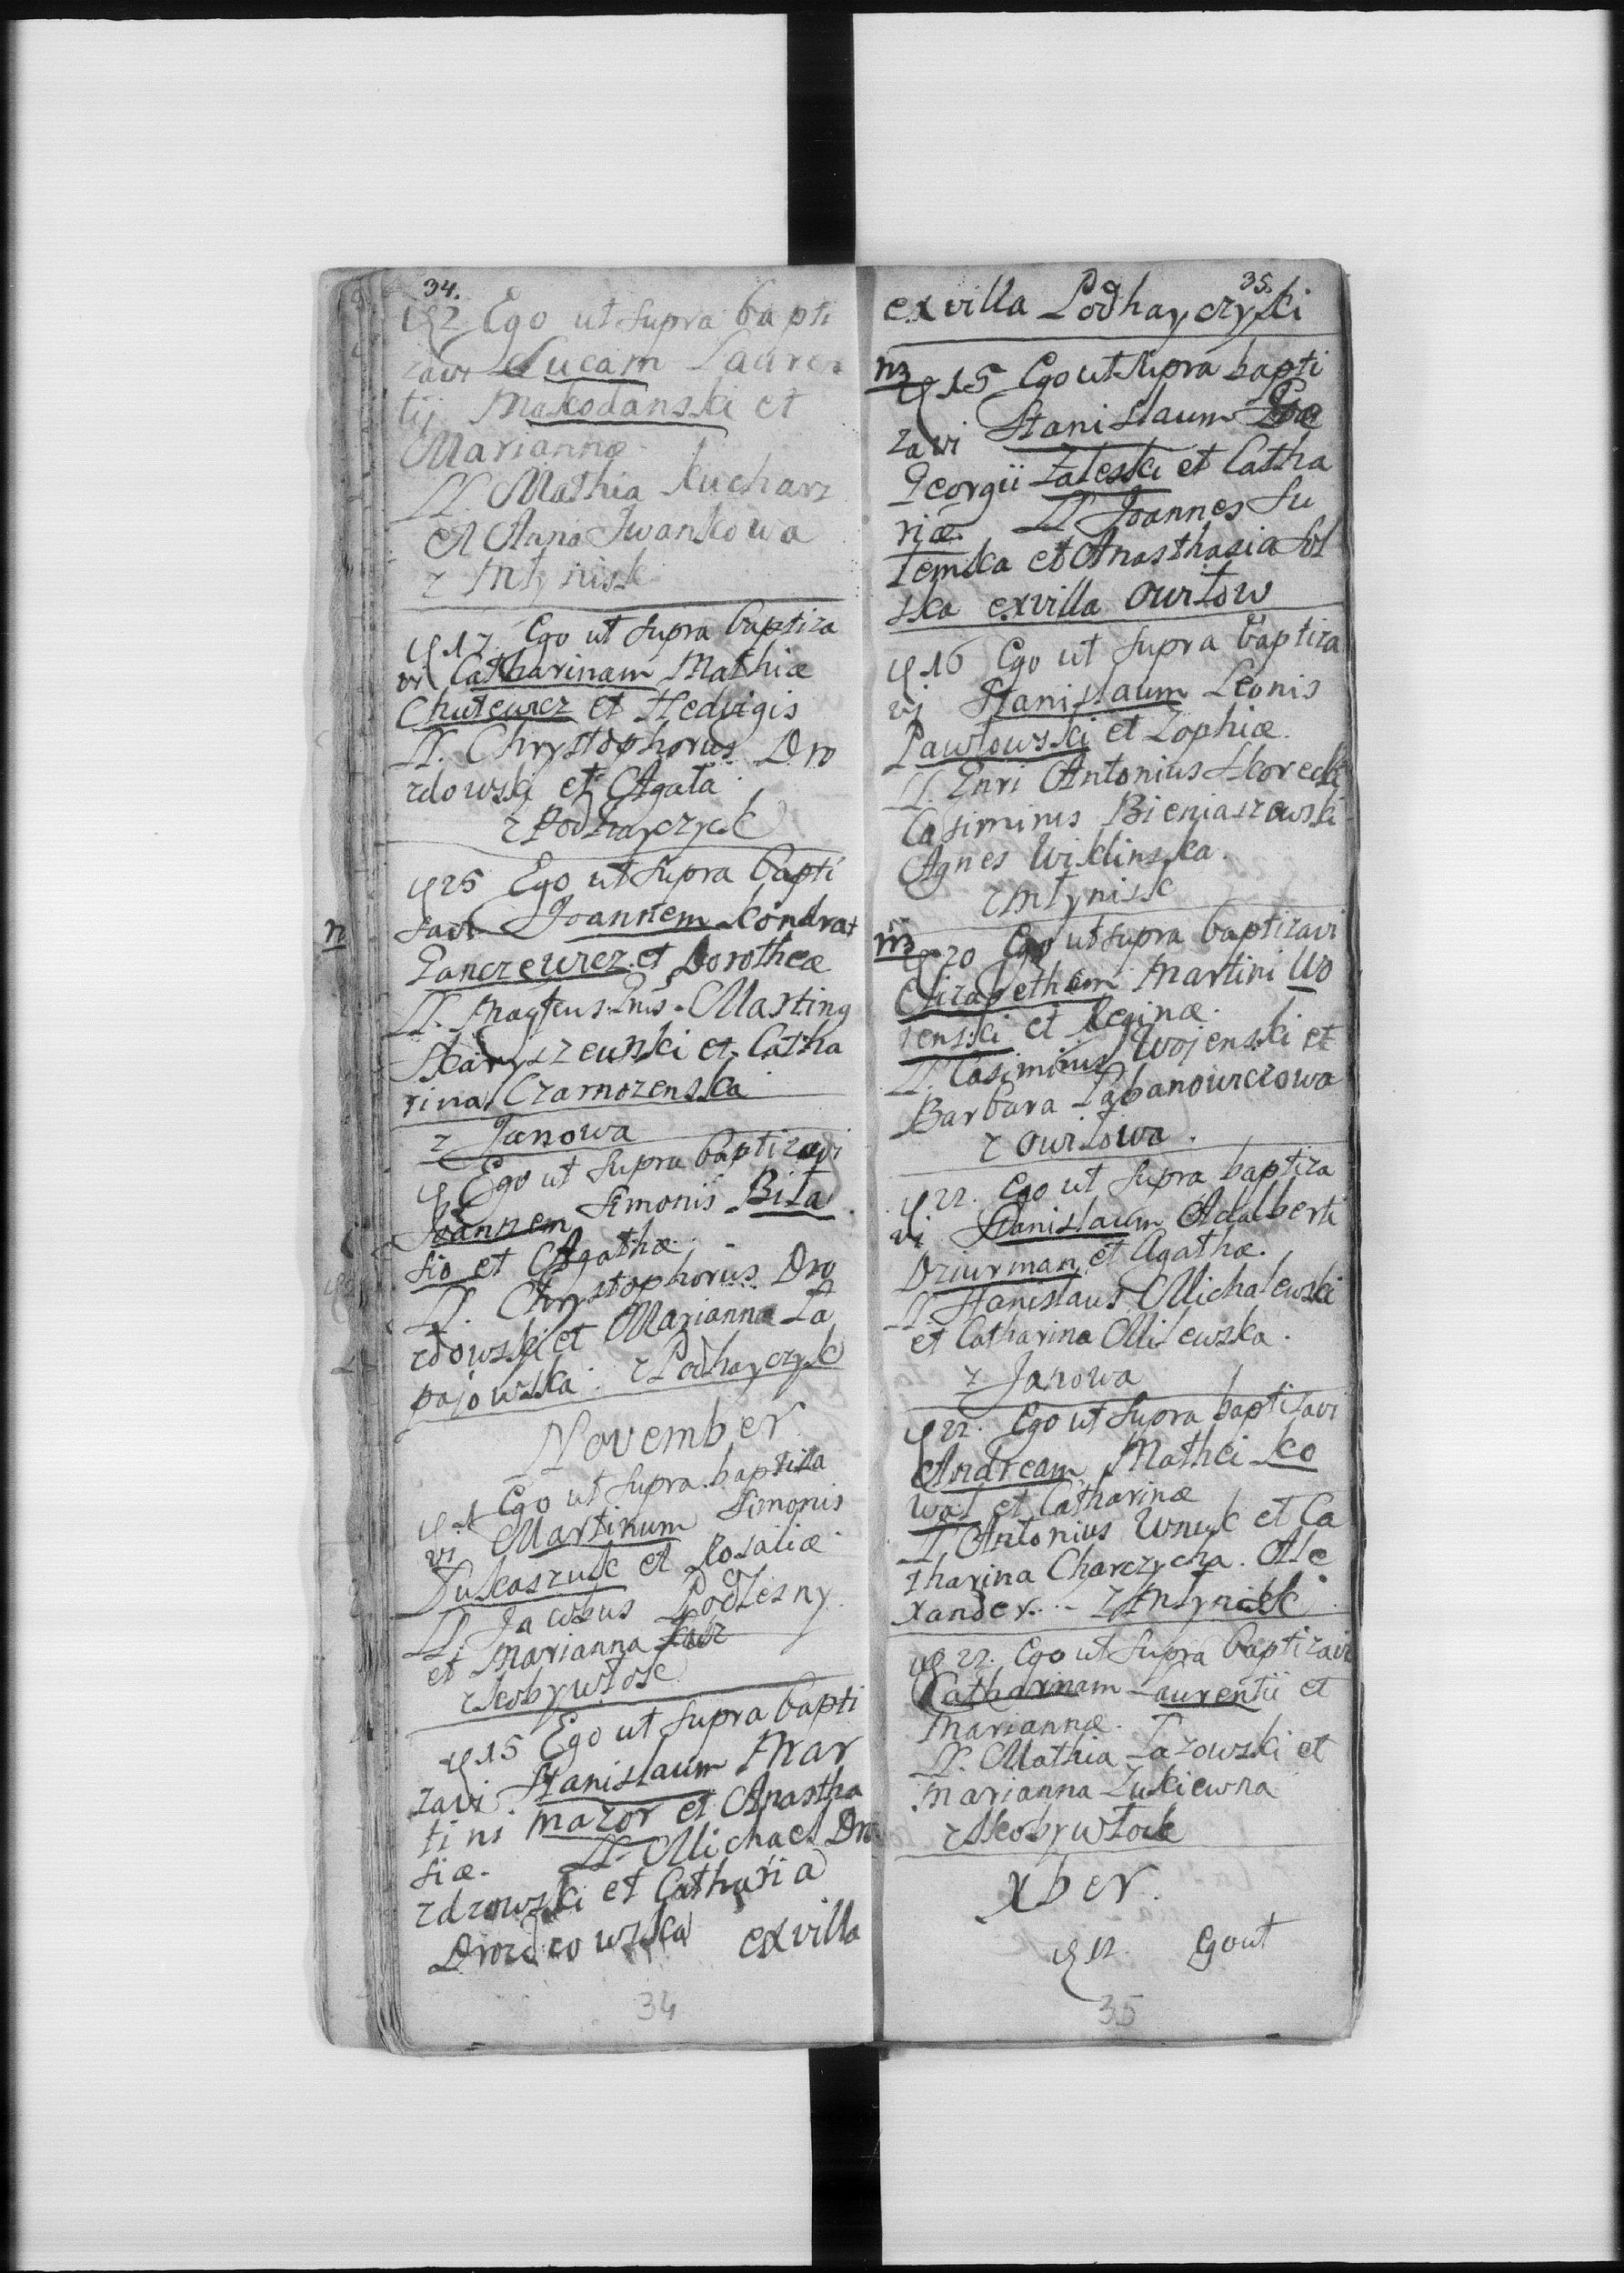 34.
12 Ego ut supra bapti
zavi Lucam Lauren
tij Makodanski et
Mariannæ
LL. Mathia Kucharz
et Anna Iwankowa
z Młynisk
17. Ego ut supra baptiza
vi Catharinam Mathiæ
Chutewicz et Hedvigis
LL. Chrystophorus Dro
zdowski et Agata
z Podhayczyk
25 Ego ut supra bapti
savi Joannem Kondrat
n
Panczewicz et Dorotheæ
LL. Martinus
Skaryszewski et Catha
rina Czarnozenska
z Janowa
Ego ut supra baptizavi
Joannem Simonis Biła
sio et Agathæ
LL. Chrystophorus Dro
zdowski et Marianna Ła
pajowska z Podhayczyk
November
1 Ego ut supra baptiza
vi Martinum Simonis
Łukaszuk et Rosaliæ
LL. Jacobus Podlesny
et Marianna
z Kobywłok
15 Ego ut supra bapti
zavi Stanislaum Mar
tini Mazor et Anastha
siæ. LL. Michael Dro
zdzowski et Catharia
Drozdzowska ex villa
34
35.
ex villa Podhayczyski
15 Ego ut supra bapti
zavi Stanislaum
Georgii Zaleski et Catha
riæ. LL Joannes Su
temka et Anasthasia Sol
ska ex villa Owitow
16 Ego ut supra baptiza
vj Stanislaum Leonis
Pawłowski et Zophiæ.
LL. Antonius Skorecki
Casimirus Bieniaszewski
Agnes Wiklinska.
z Młynisk
20 Ego ut supra baptizavi
Elizabetham Martini Wo
jenski et Reginæ.
LL. Casimirus Wojenski et
Barbara Łabanowiczowa
z Owitowa.
22. Ego ut supra baptiza
vj Stanislaum Adalberti
Dziurman et Agathæ.
LL Stanislaus Michalewski
et Catharina Milewska.
z Janowa
22. Ego ut supra baptizavi
Andream Mathei Ko
wal et Catharinæ
LL Antonius Wnuk et Ca
tharina Charczycha. Ale
xander. - z Młynisk
22. Ego ut supra baptizavi
Catharinam Laurentii et
Mariannæ.
LL. Mathia Łazowski et
Marianna Żukiewna
z Kobywłok
Xber.
12. Ego ut
35